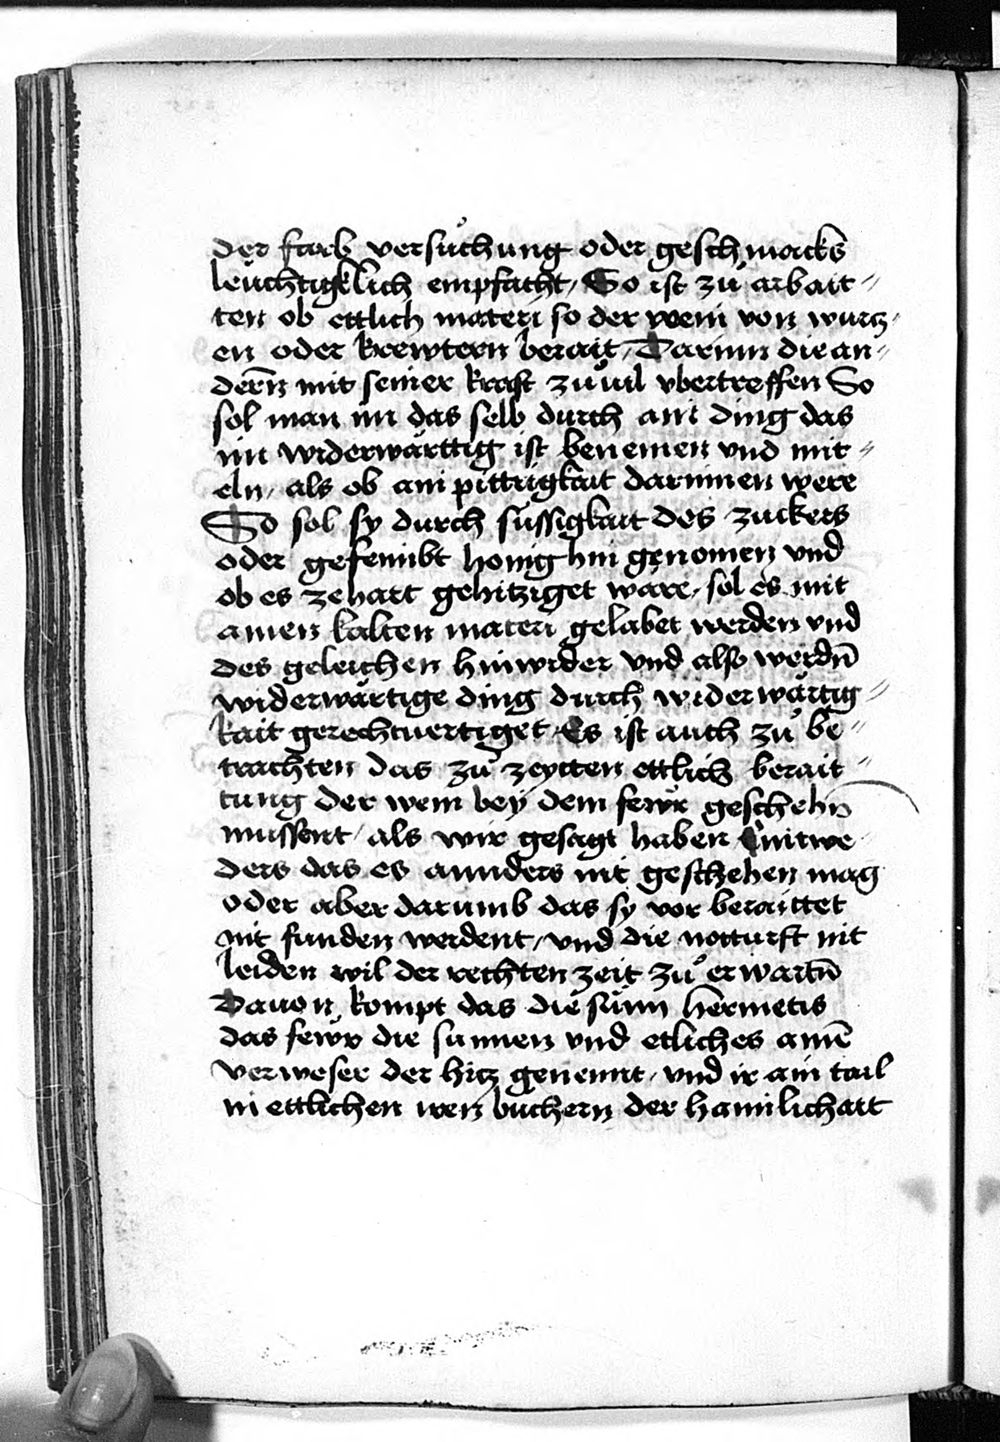 der starck versůchung oder geschmacks
leuchtigklich empfacht / So ist zů arbait〃
ten ob ettlich materj so der wein von wurtz〃
en oder krewtern berait / Darinn die an〃
derñ mit seiner kraft zůuil vbertreffen So
sol man im das selb durch ain ding das
im widerwärttig ist benemen vnd mit〃
eln / als ob ain pittrigkait darinnen were
So sol sy durch süssigkait des zuckers
oder gefeimbt honig hin genomen vnd
ob es ze hart gehitziget wäre / sol es mit
ainen kalten materi gelabet werden vnd
des geleichen hinwider vnd also werdñ
widerwärtige ding durch widerwärtig〃
kait gerechtuertiget / Es ist auch zů be〃
trachten das zů zeytten ettlich berait〃
tung der wein bey dem fewr geschehñ
mussent / als wir gesagt haben Eintwe
ders das es annders nit geschehen mag
oder aber darumb das sy vor beraittet
nit funden werdent / vnd die notturft nit
leiden wil der rechten zeit zů erwartñ
Dauon kompt das die sünn hermetis
das fewr die sunnen vnd etliches ainē
verweser der hitz genennt / vnd ir ain tail
in ettlichen iren buchern der hamlichait